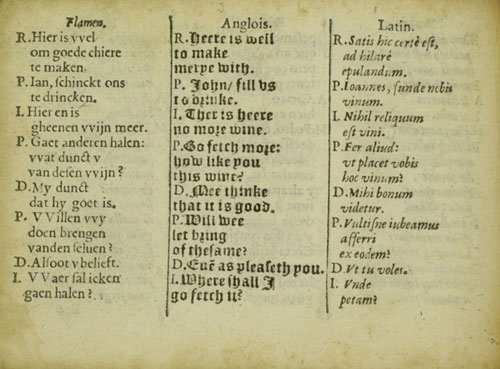 Flamen.
R. Hier is vvel
om goede chiere
te maken.
P. Ian, schinckt ons
te drincken.
I. Hier en is
gheenen vvijn meer.
P. Gaet anderen halen:
vvat dunct v
van desen vvijn?
D. My dunct
dat hy goet is.
P. VVillen vvy
doen brengen
vanden seluen?
D. Alsoot v belieft.
I. VVaer sal icken
gaen halen?
Anglois.
R. Heere is well
to make
merye with.
P. John/ fill vs
to drinke.
I. Ther is heere
no more wine.
P. Go fetch more:
how like you
this wine?
D. Mee thinke
that it is good.
P. Will wee
let bring
of thesame?
D. Euē as pleaseth you.
I. Where shall I
go fetch it?
Latin.
R. Satis hic certè est,
ad hilarè
epulandum.
P. Ioannes, funde nobis
vinum.
I. Nihil reliquum
est vini.
P. Fer aliud:
vt placet vobis
hoc vinum?
D. Mihi bonum
videtur.
P. Vultisne iubeamus
afferri
ex eodem?
D. Vt tu voles.
I. Vnde
petam?